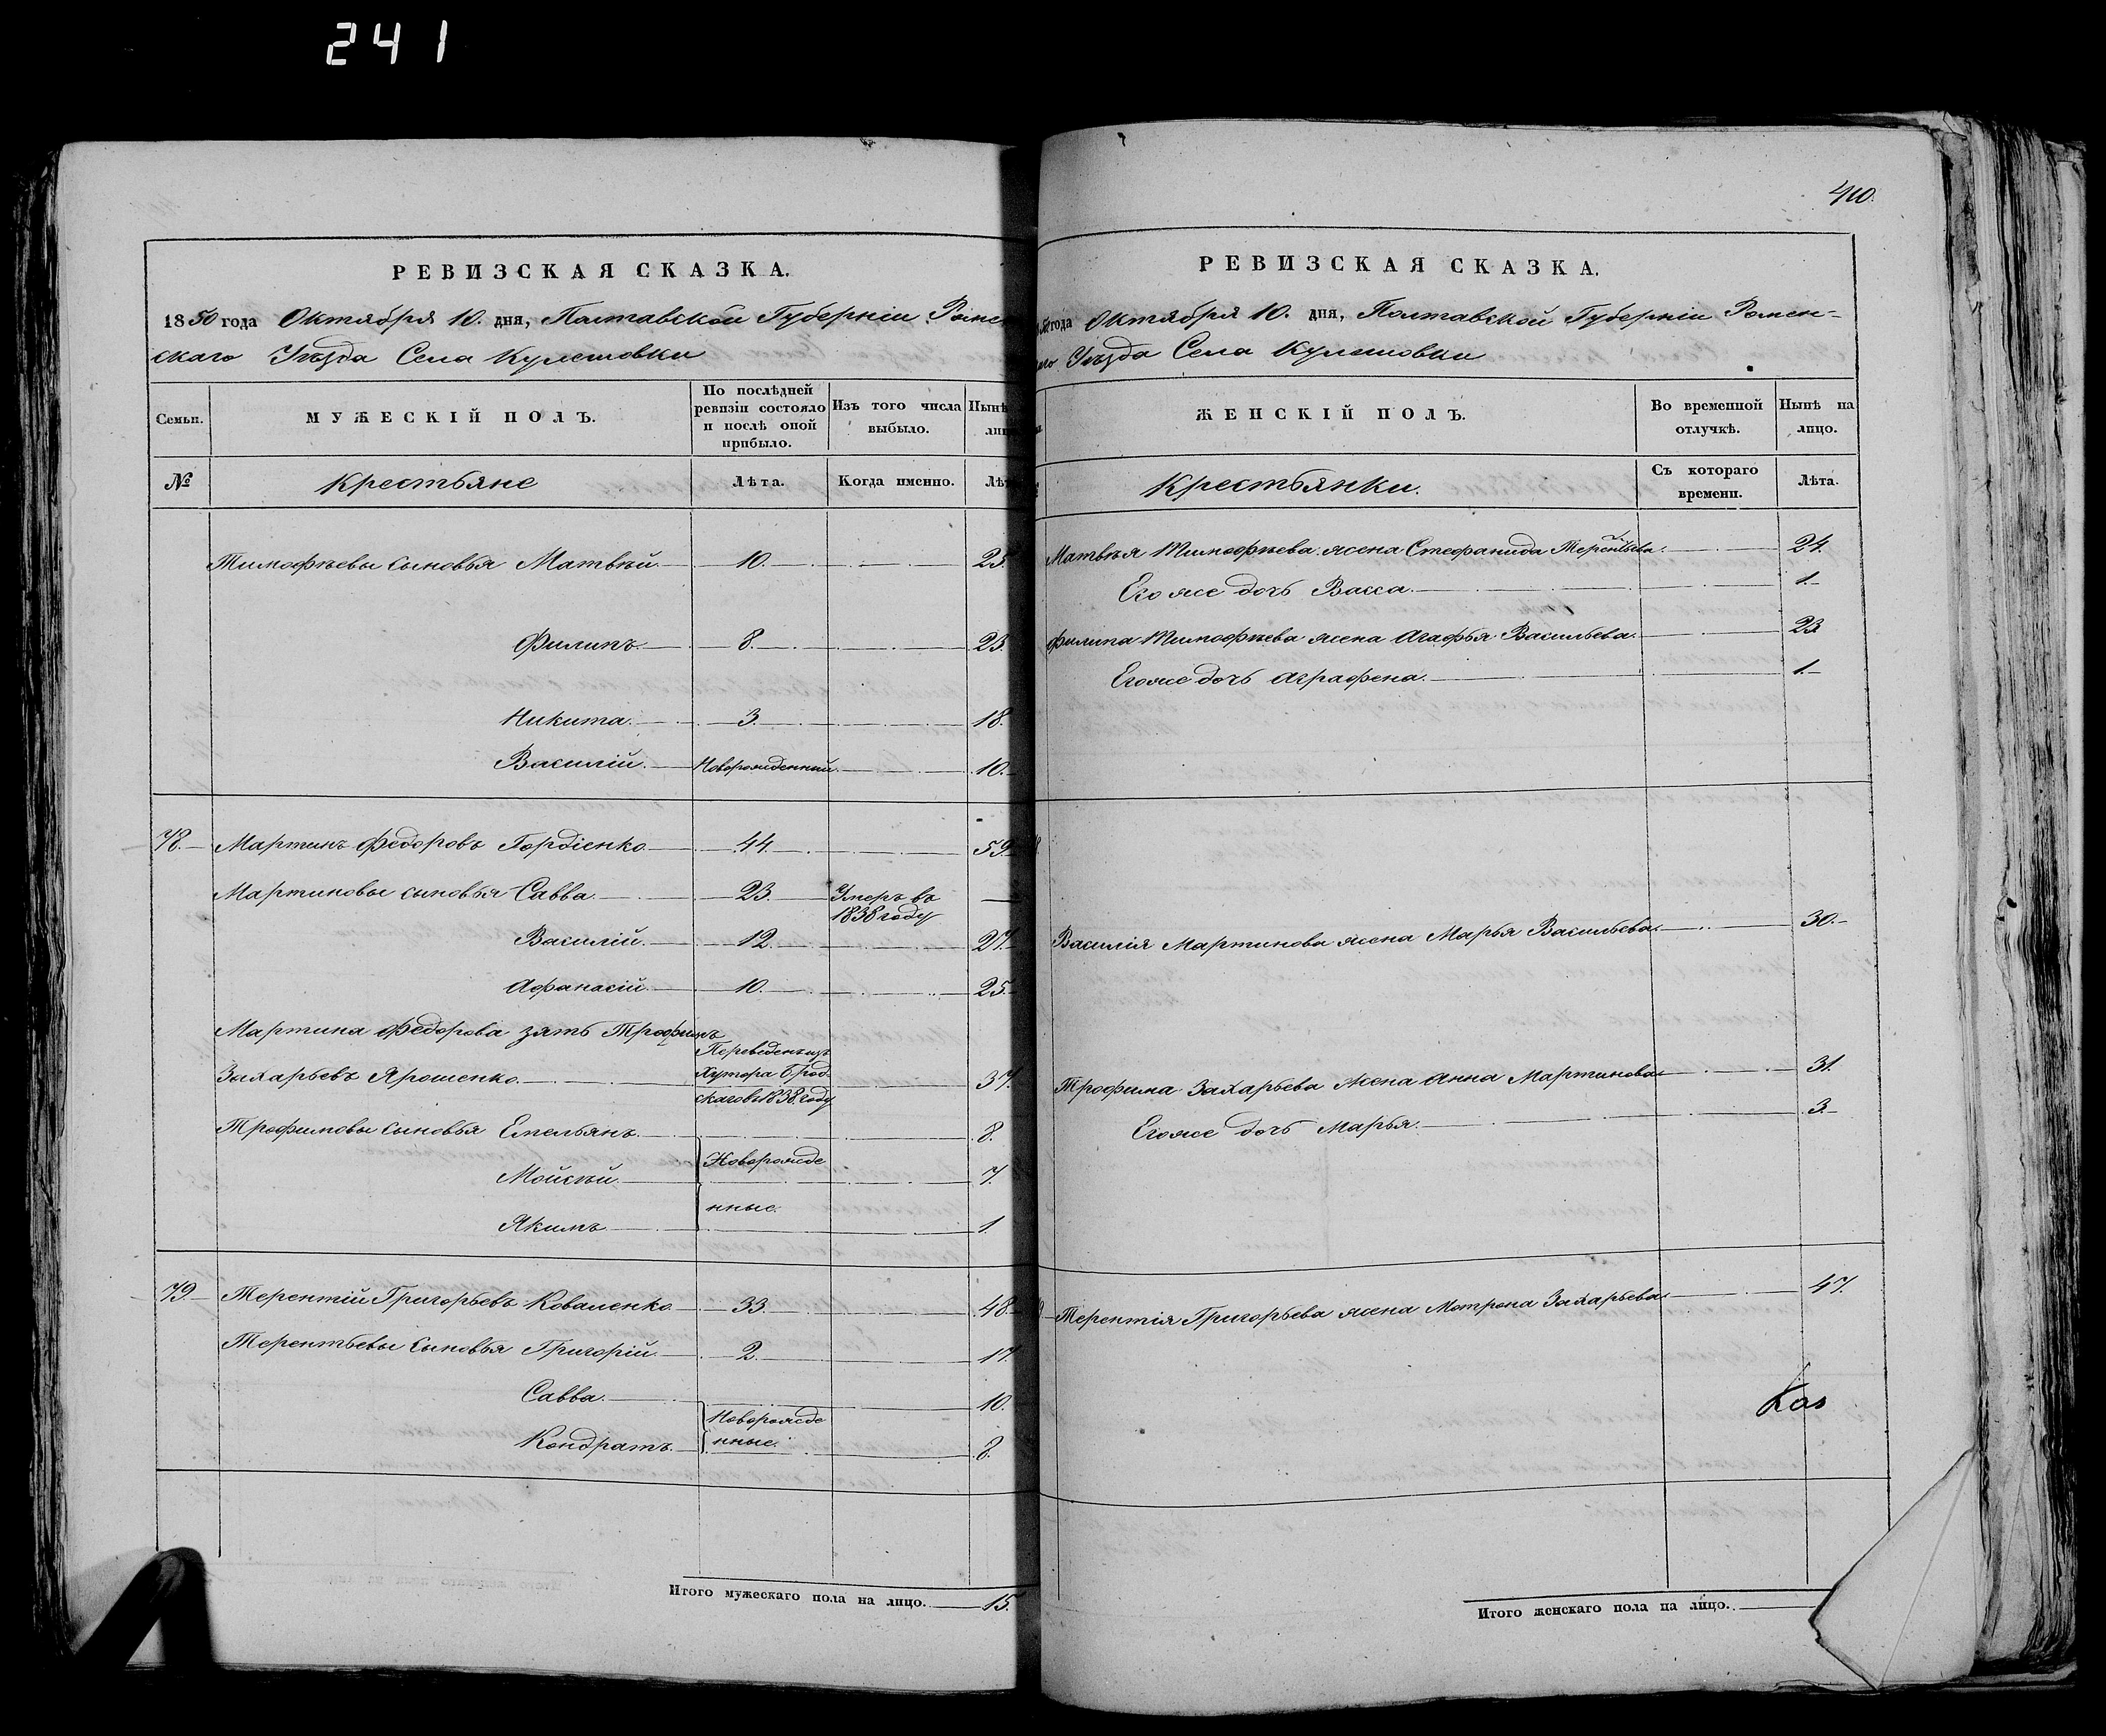 241
РЕВИЗСКАЯ СКАЗКА.
1850 года Октября 10. дня, Полтавской Губерніи Ромен
скаго Уѣзда Села Кулешовки
Семьи.
МУЖЕСКІЙ ПОЛЪ.
По послѣдней ревизіи состояло и послѣ оной прибыло.
Изъ того числа выбыло.
Нынѣ лиц
№
Крестьяне
Лѣта.
Когда именно.
Лѣт
Тимофѣевы сыновья Матвѣй. 10. 25.
Филипъ. 8. 23.
Никита. 3. 18.
Василій. Новорожденный. 10.
78. Мартинъ Федоровъ Гордіенко 44. 59.
Мартиновы сыновья Савва. 23. Умеръ въ 1838 году
Василій. 12. 27.
Афанасій. 10. 25.
Мартина Федорова зять Трофимъ
Захарьевъ Ярошенко. Переведенъ изъ Хутора Брод скаго въ 1838 году 37.
Трофимовы сыновья Емельянъ. 8.
Мойсѣй. Новорожде 7.
нные.
Якимъ. 1
79. Терентій Григорьевъ Коваленко 33. 48.
Терентьевы сыновья Григорій. 2. 17.
Савва. 10.
Новорожде
Кондратъ. нные. 8.
Итого мужескаго пола на лицо. 15.
410.
РЕВИЗСКАЯ СКАЗКА.
года Октября 10. дня, Полтавской Губерніи Ромен-
Уѣзда Села Кулешовки
ЖЕНСКІЙ ПОЛЪ.
Во временной отлучкѣ.
Нынѣ на лицо.
Крестьянки.
Съ котораго времени.
Лѣта.
Матвѣя Тимофѣева жена Стефанида Терентьева. 24.
Его же дочь Васса. 1.
Филипа Тимофѣева жена Агафья Васильева. 23
Егоже дочь Аграфена. 1.
Василія Мартинова жена Марья Васильева 30.
Трофима Захарьева жена Анна Мартинова 31.
Егоже дочь Марья. 3.
Терентія Григорьева жена Мотрона Захарьева 47.
Итого женскаго пола на лицо.